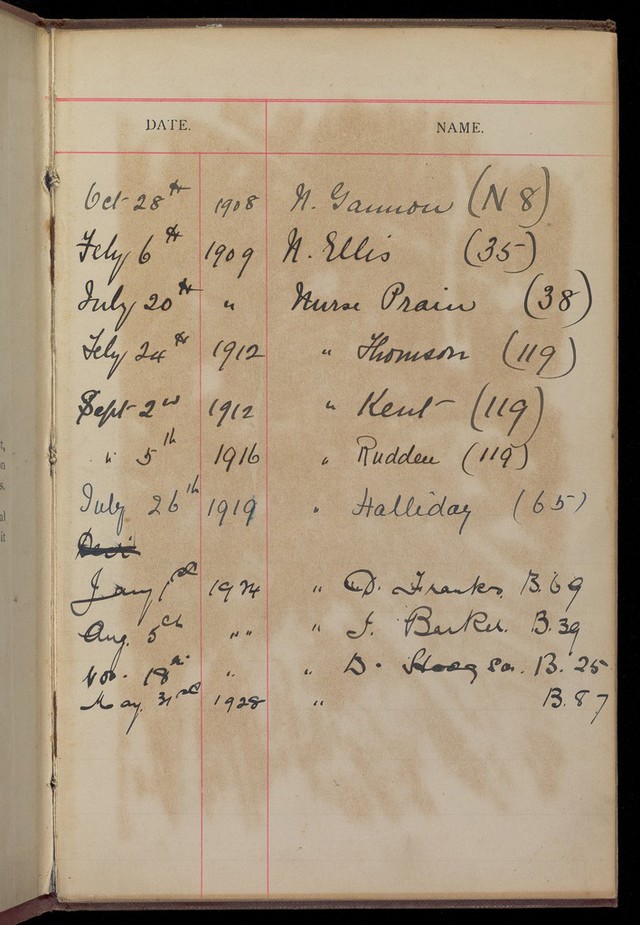 DATE. NAME.
Oct 28th 1908 N. Gannon (N 8)
Feby 6th 1909 N. Ellis (35)
July 20th " Nurse Prain (38)
Feby 24th 1912 " Thomson (119)
Sept 2nd 1912 " Kent (119)
" 5th 1916 " Rudden (119)
July 26th 1919 " Halliday (65)
Jany 1st 1924 " D. Franks. B. 69
Aug. 5th "" " J. Barker. B. 39
Nov. 18th " " D. Hodgson. B. 25
May. 31st 1928 " B. 87